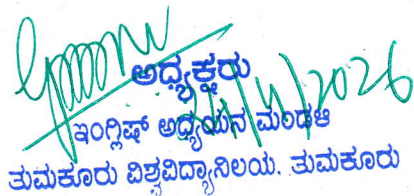 ಅಧ್ಯಕ್ಷರು
ಇಂಗ್ಲಿಷ್ ಅಧ್ಯಯನ ಮಂಡಳಿ
ತುಮಕೂರು ವಿಶ್ವವಿದ್ಯಾನಿಲಯ. ತುಮಕೂರು